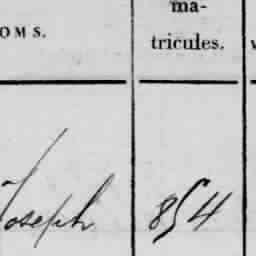 OMS.
ma-
tricules.
Joseph 854